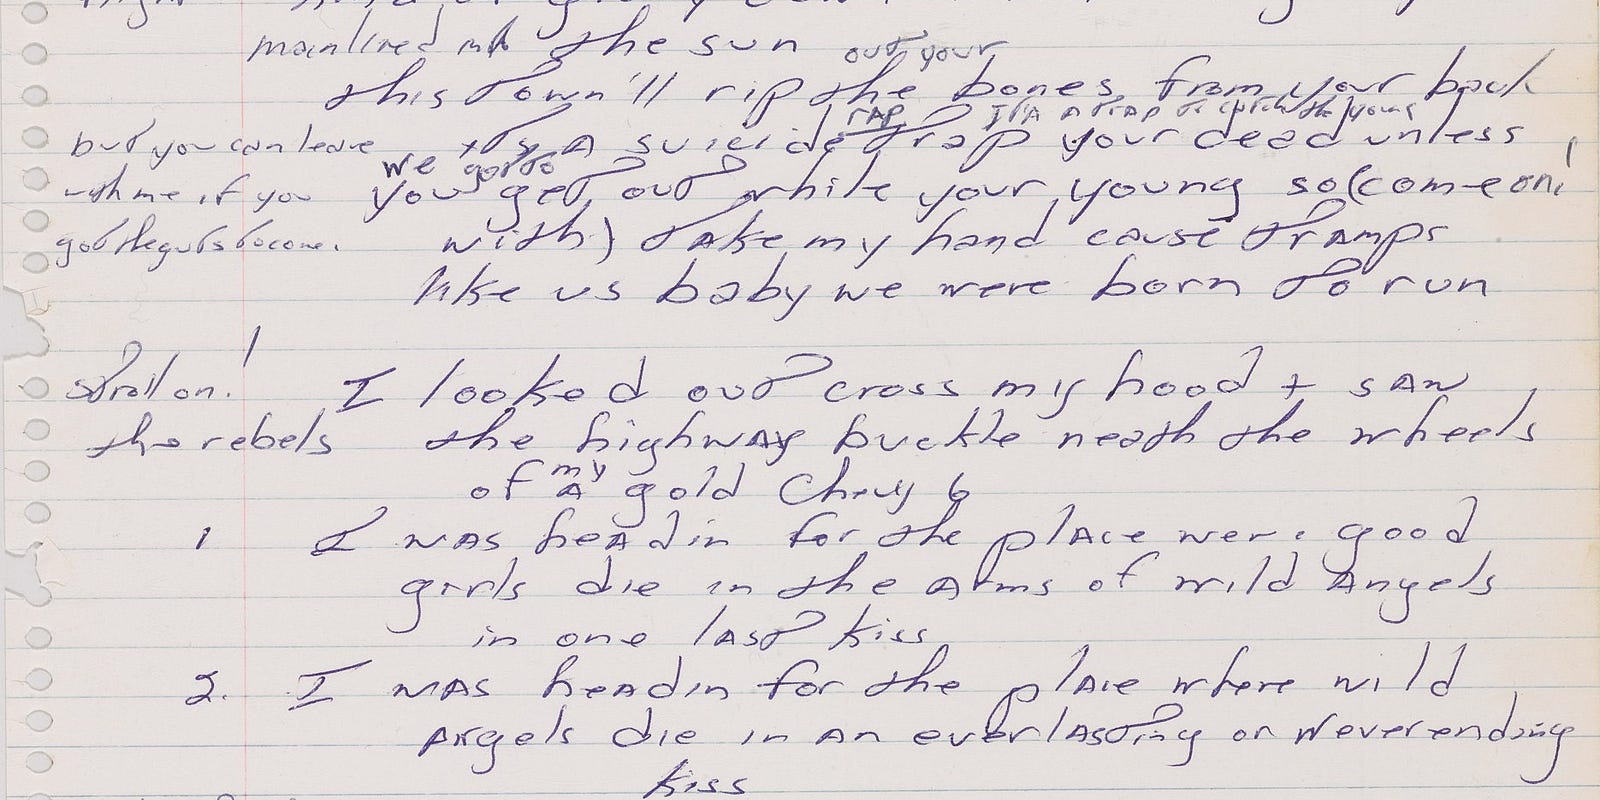 mainlined into the sun out your
this town'll rip the bones from your back
rap It's A trap to catch the young
but you can leave its A suicide trap your dead unless
we gotto
with me if you you get out while your young so (come on!
got the guts to come. with) take my hand cause tramps
like us baby we were born to run
stroll on! I looked out cross my hood + saw
the rebels the highway buckle neath the wheels
my
of A gold Chevy 6
1 I was headin for the place were good
girls die in the arms of wild Angels
in one last kiss
2. I was headin for the place where wild
Angels die in an everlasting or Neverending
kiss